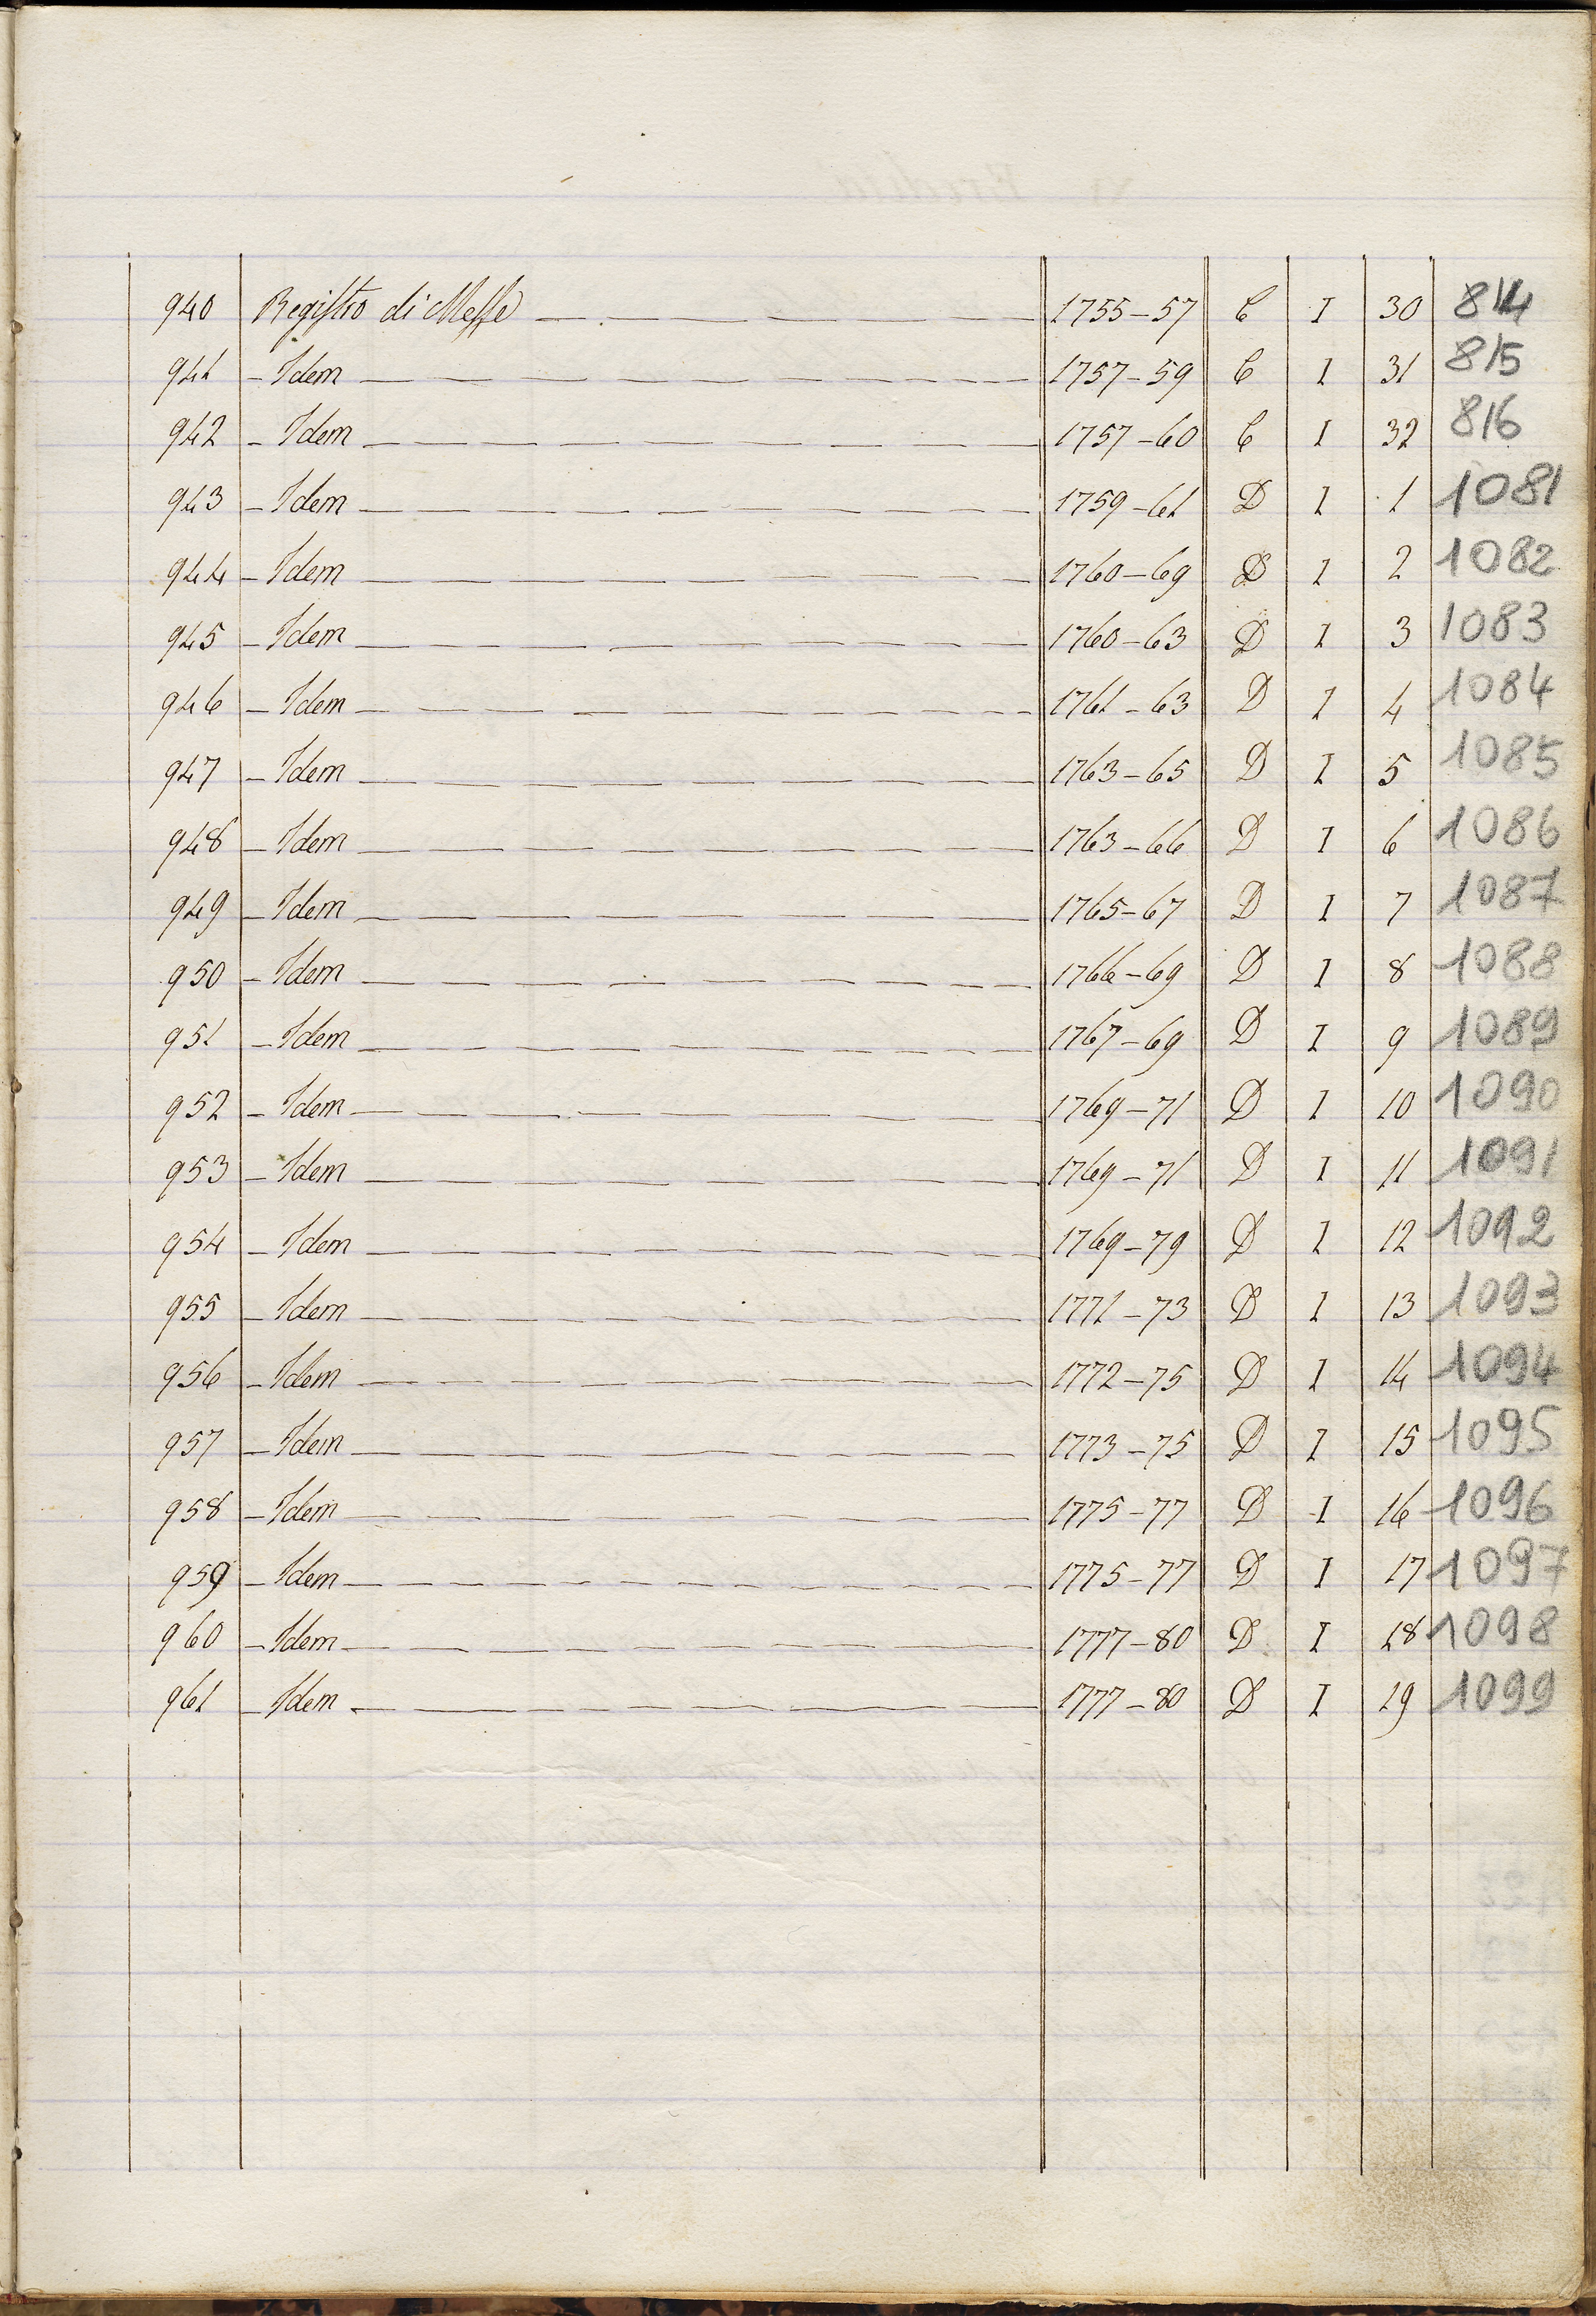 940 Registro di Messe 1755-57 C I 30 814
941 - Idem 1757-59 C I 31 815
942 - Idem 1757-60 C I 32 816
943 - Idem 1759-61 D I 1 1081
944 - Idem 1760-69 D I 2 1082
945 - Idem 1760-63 D I 3 1083
946 - Idem 1761-63 D I 4 1084
947 - Idem 1763-65 D I 5 1085
948 - Idem 1763-66 D I 6 1086
949 - Idem 1765-67 D I 7 1087
950 - Idem 1766-69 D I 8 1088
951 - Idem 1767-69 D I 9 1089
952 - Idem 1769-71 D I 10 1090
953 - Idem 1769-71 D I 11 1091
954 - Idem 1769-79 D I 12 1092
955 - Idem 1771-73 D I 13 1093
956 - Idem 1772-75 D I 14 1094
957 - Idem 1773-75 D I 15 1095
958 - Idem 1775-77 D I 16 1096
959 - Idem 1775-77 D I 17 1097
960 - Idem 1777-80 D I 18 1098
961 - Idem 1777-80 D I 19 1099